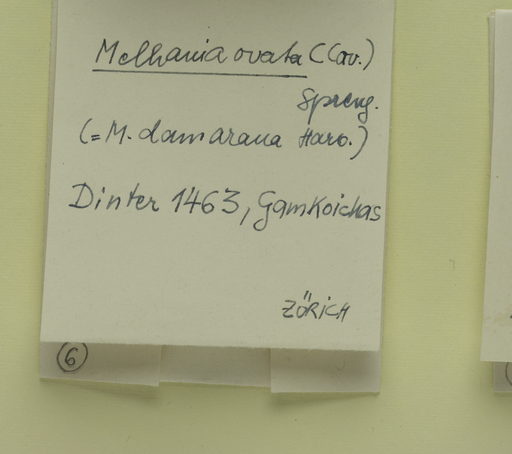 Melhania ovata (Cav.)
Spreng.
(= M. damarana Harv.)
Dinter 1463, Gamkoichas
ZÜRICH
6